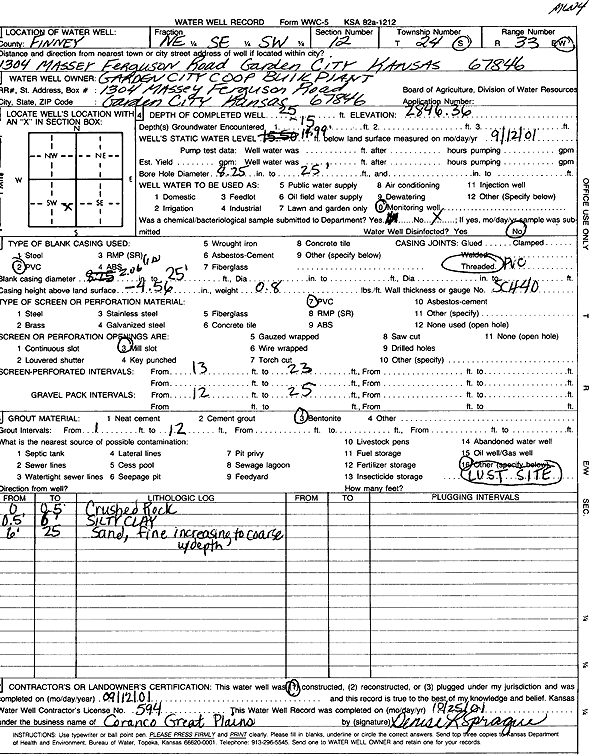 MW4
WATER WELL RECORD Form WWC-5 KSA 82a-1212
LOCATION OF WATER WELL: Fraction Section Number Township Number Range Number
County: FINNEY NE ¼ SE ¼ SW ¼ 12 T 24 S R 33 E/W
Distance and direction from nearest town or city street address of well if located within city?
1304 MASSEY Ferguson Road Garden City Kansas 67846
WATER WELL OWNER: GARDEN CITY COOP BULK PLANT
RR#, St. Address, Box #: 1304 Massey Ferguson Road Board of Agriculture, Division of Water Resources
City, State, ZIP Code : Garden City Kansas 67846 Application Number:
LOCATE WELL'S LOCATION WITH AN "X" IN SECTION BOX: 4 DEPTH OF COMPLETED WELL 25 ft. ELEVATION: 2846.36
N Depth(s) Groundwater Encountered 1. ~15 ft. 2. ft. 3. ft.
WELL'S STATIC WATER LEVEL 14.99' ft. below land surface measured on mo/day/yr 9/12/01
NW NE Pump test data: Well water was ft. after hours pumping gpm
Est. Yield gpm: Well water was ft. after hours pumping gpm
W E Bore Hole Diameter 8.25 in. to 25' ft., and in. to ft.
WELL WATER TO BE USED AS: 5 Public water supply 8 Air conditioning 11 Injection well
SW X SE 1 Domestic 3 Feedlot 6 Oil field water supply 9 Dewatering 12 Other (Specify below)
2 Irrigation 4 Industrial 7 Lawn and garden only 10 Monitoring well
S Was a chemical/bacteriological sample submitted to Department? Yes No X ; If yes, mo/day/yr sample was submitted
Water Well Disinfected? Yes No
TYPE OF BLANK CASING USED: 5 Wrought iron 8 Concrete tile CASING JOINTS: Glued Clamped
1 Steel 3 RMP (SR) 6 Asbestos-Cement 9 Other (specify below) Welded
2 PVC 4 ABS 7 Fiberglass Threaded PVC
Blank casing diameter 2.06 in. to 25' ft., Dia in. to ft., Dia in. to ft.
Casing height above land surface -4.56 in., weight 0.8 lbs./ft. Wall thickness or gauge No. SCH40
TYPE OF SCREEN OR PERFORATION MATERIAL: 7 PVC 10 Asbestos-cement
1 Steel 3 Stainless steel 5 Fiberglass 8 RMP (SR) 11 Other (specify)
2 Brass 4 Galvanized steel 6 Concrete tile 9 ABS 12 None used (open hole)
SCREEN OR PERFORATION OPENINGS ARE: 5 Gauzed wrapped 8 Saw cut 11 None (open hole)
1 Continuous slot 3 Mill slot 6 Wire wrapped 9 Drilled holes
2 Louvered shutter 4 Key punched 7 Torch cut 10 Other (specify)
SCREEN-PERFORATED INTERVALS: From 13 ft. to 23 ft., From ft. to ft.
From ft. to ft., From ft. to ft.
GRAVEL PACK INTERVALS: From 12 ft. to 25 ft., From ft. to ft.
From ft. to ft., From ft. to ft.
GROUT MATERIAL: 1 Neat cement 2 Cement grout 3 Bentonite 4 Other
Grout Intervals: From 1 ft. to 12 ft., From ft. to ft., From ft. to ft.
What is the nearest source of possible contamination: 10 Livestock pens 14 Abandoned water well
1 Septic tank 4 Lateral lines 7 Pit privy 11 Fuel storage 15 Oil well/Gas well
2 Sewer lines 5 Cess pool 8 Sewage lagoon 12 Fertilizer storage 16 Other (specify below)
3 Watertight sewer lines 6 Seepage pit 9 Feedyard 13 Insecticide storage LUST SITE
Direction from well? How many feet?
FROM TO LITHOLOGIC LOG FROM TO PLUGGING INTERVALS
0 0.5' Crushed Rock
0.5' 6' SILTY CLAY
6' 25 Sand, fine increasing to coarse
w/depth
CONTRACTOR'S OR LANDOWNER'S CERTIFICATION: This water well was (1) constructed, (2) reconstructed, or (3) plugged under my jurisdiction and was
completed on (mo/day/year) 09/12/01 and this record is true to the best of my knowledge and belief. Kansas
Water Well Contractor's License No. 594 This Water Well Record was completed on (mo/day/yr) 10/25/01
under the business name of Coranco Great Plains by (signature) Denise R Sprague
INSTRUCTIONS: Use typewriter or ball point pen. PLEASE PRESS FIRMLY and PRINT clearly. Please fill in blanks, underline or circle the correct answers. Send top three copies to Kansas Department
of Health and Environment, Bureau of Water, Topeka, Kansas 66620-0001. Telephone: 913-296-5545. Send one to WATER WELL OWNER and retain one for your records.
OFFICE USE ONLY
T
R
E/W
SEC.
¼
¼
¼